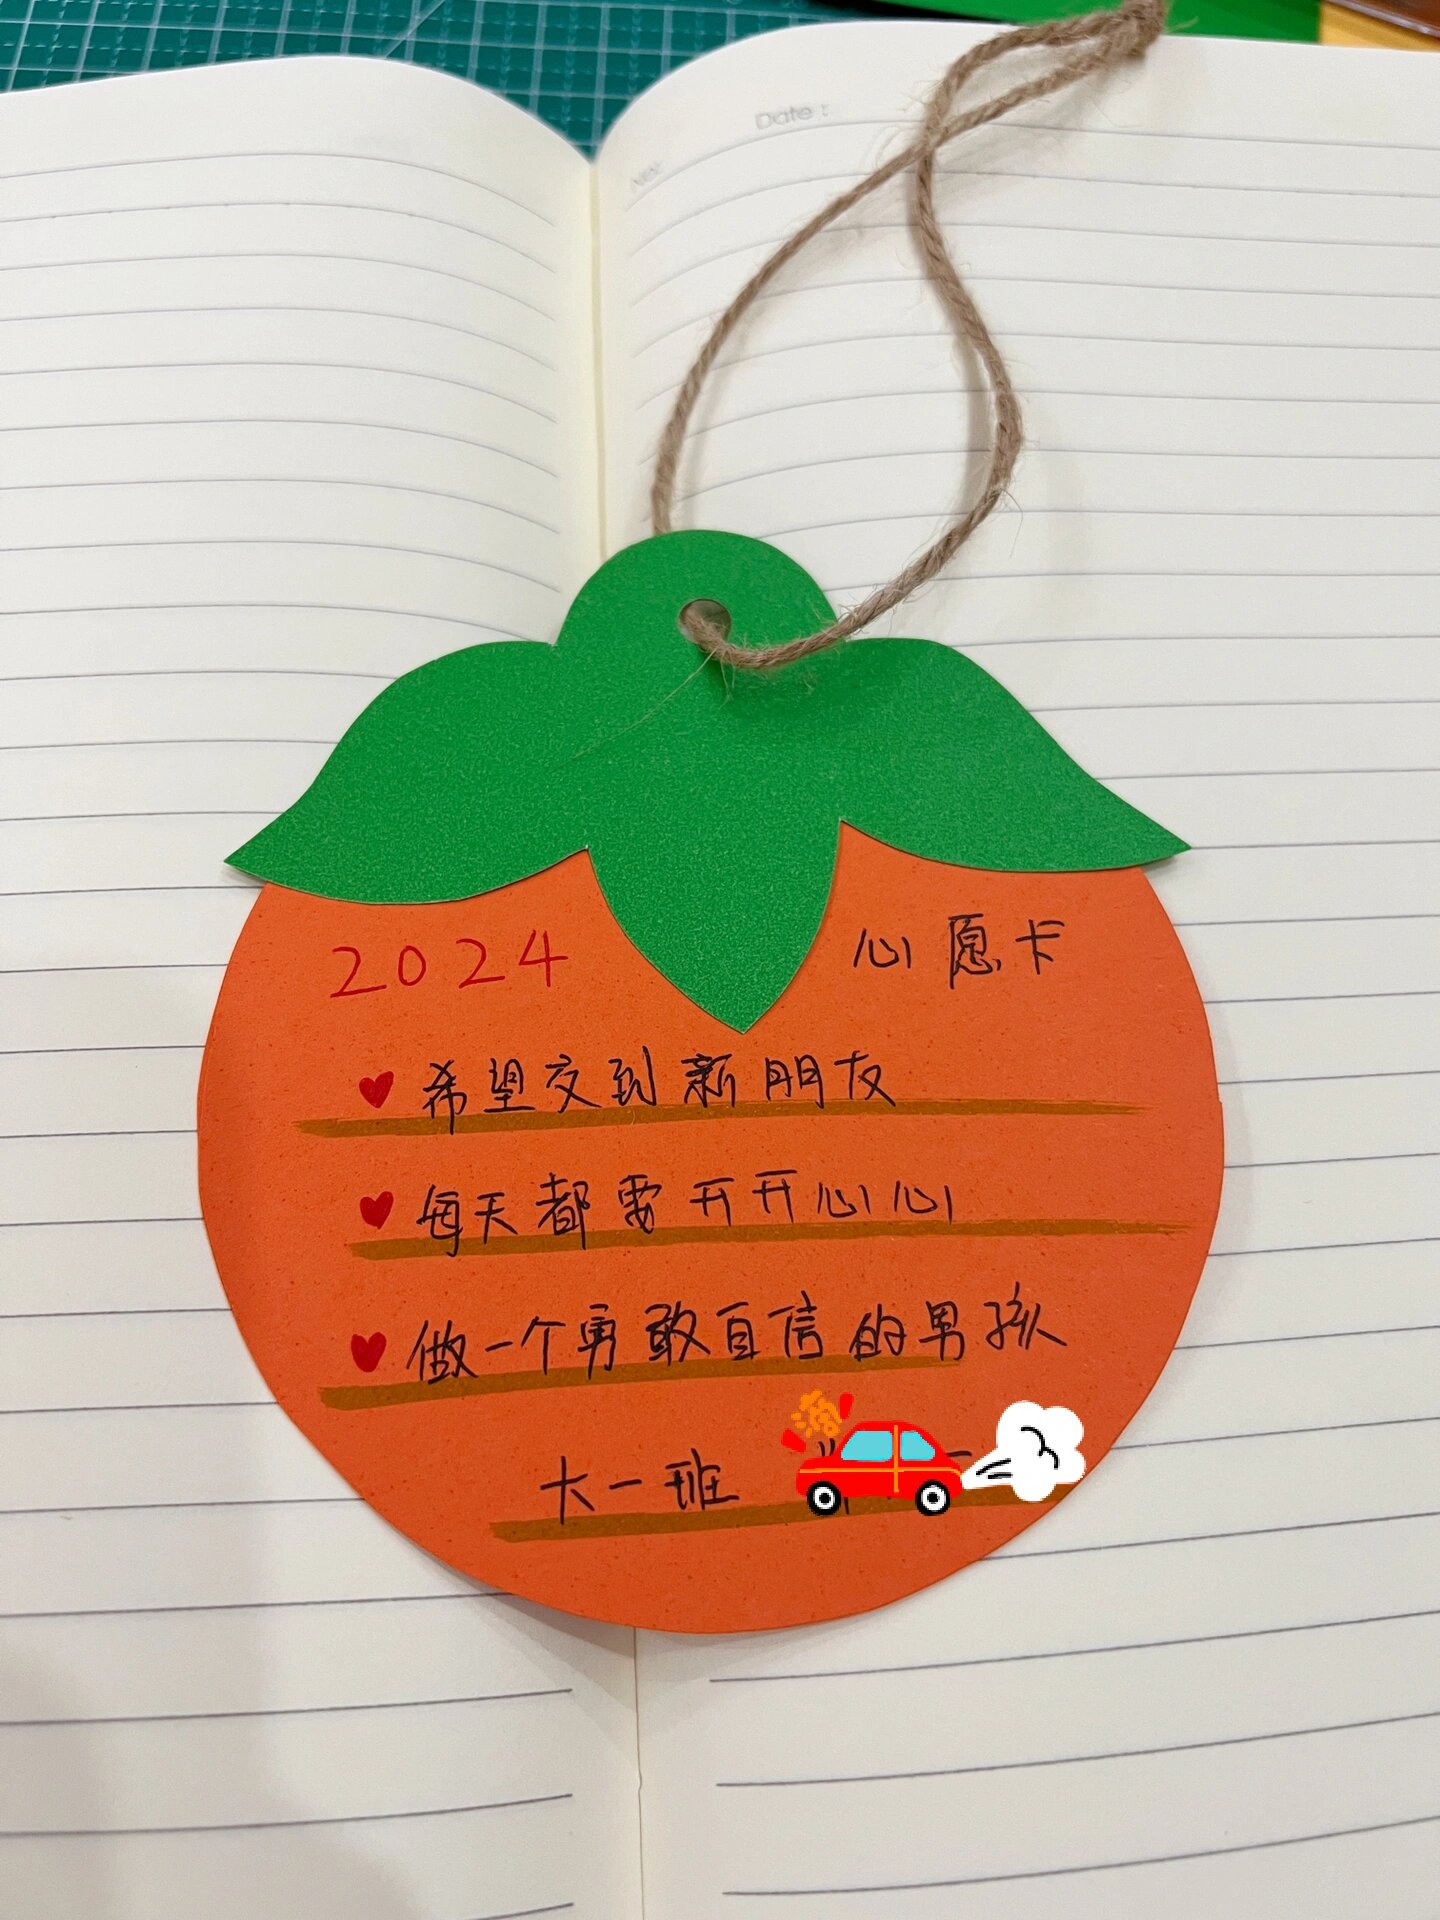 Date :
No:
2024 心愿卡
希望交到新朋友
每天都要开开心心
做一个勇敢自信的男孩
大一班
滴